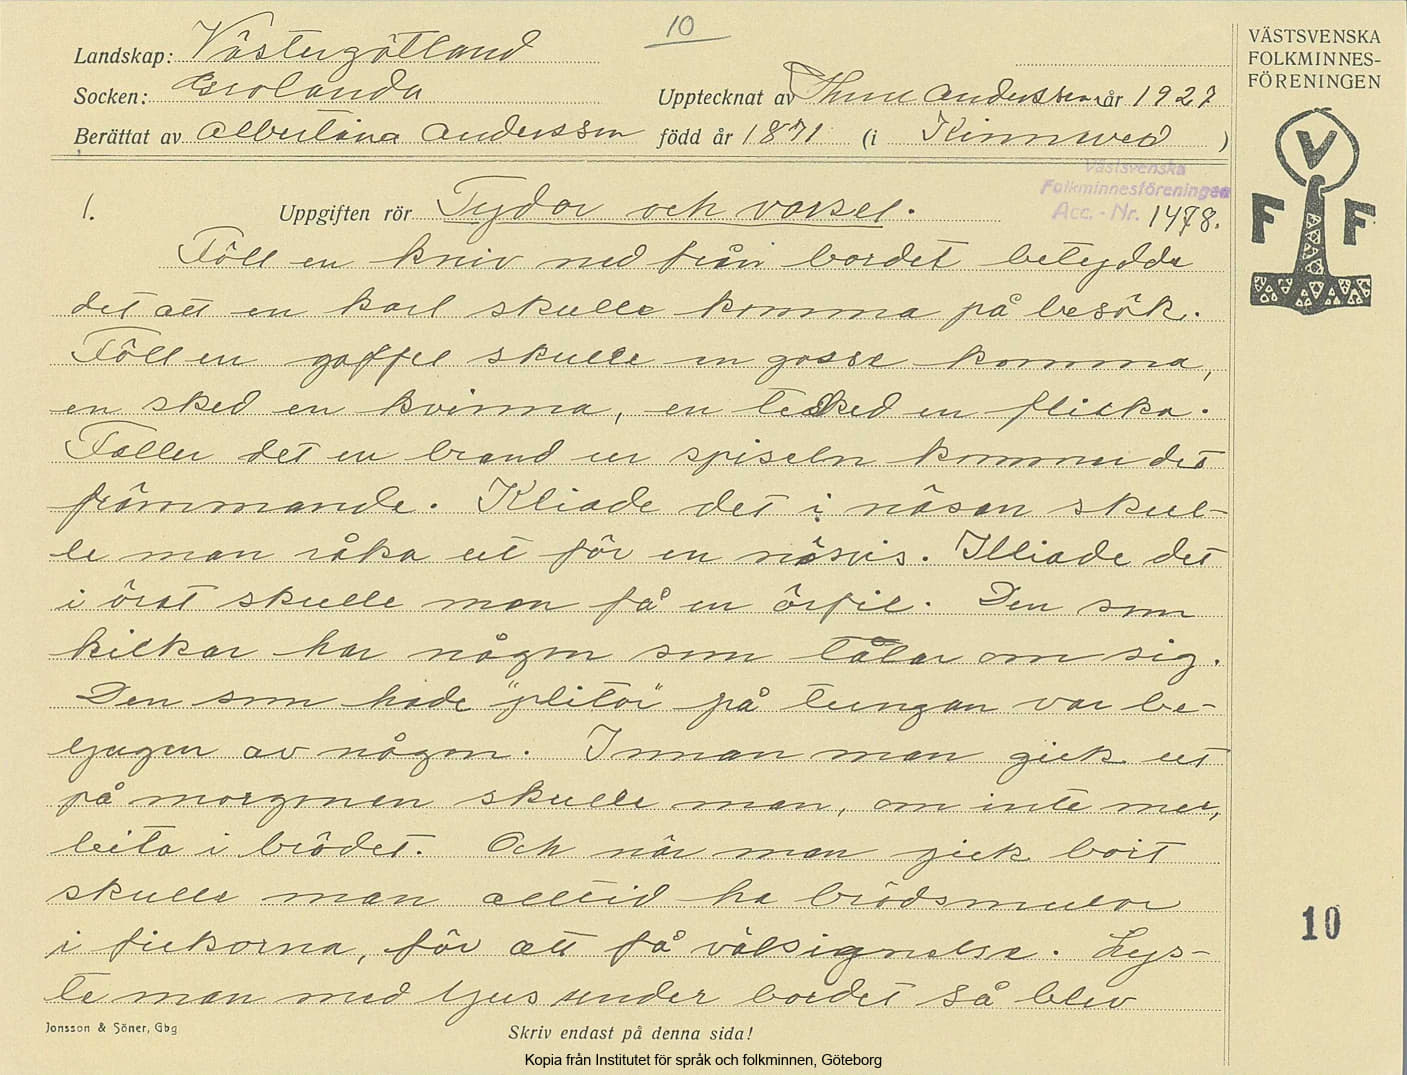 10
Landskap: Västergötland
Socken: Grolanda
Upptecknat av Thure Andersson år 1927
Berättat av Albertina Andersson född år 1871 (i Kinneved)
VÄSTSVENSKA
FOLKMINNES-
FÖRENINGEN
V
F F
Västsvenska
Folkminnesföreningen
Acc.-Nr. 1478.
1. Uppgiften rör Tydor och varsel.
Föll en kniv ned från bordet betydde
det att en karl skulle komma på besök.
Föll en gaffel skulle en gosse komma,
en sked en kvinna, en tesked en flicka.
Faller det en brand ur spiseln kommer det
främmande. Kliade det i näsan skul-
le man råka ut för en näsvis. Kliade det
i örat skulle man få en örfil. Den som
hickar har någon som tålar om sig.
Den som hade "plitor" på tungan var be-
ljugen av någon. Innan man gick ut
på morgonen skulle man, om inte mer,
bita i brödet. Och när man gick bort
skulle man alltid ha brödsmulor
i fickorna, för att få välsignelse. Lys-
te man med ljus under bordet så blev
10
Jonsson & Söner, Gbg
Skriv endast på denna sida!
Kopia från Institutet för språk och folkminnen, Göteborg